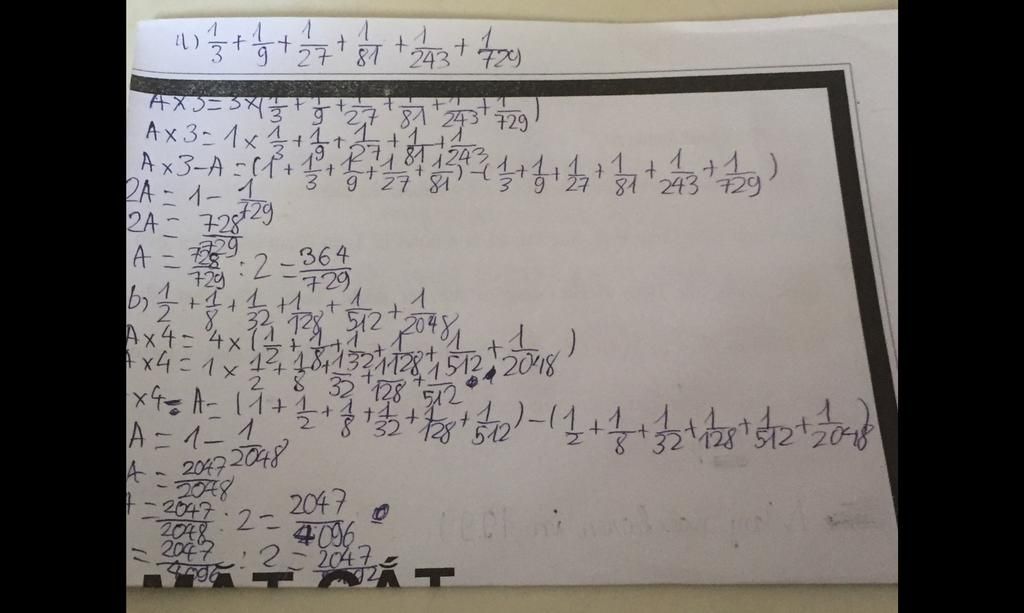 a) 1/3 + 1/9 + 1/27 + 1/81 + 1/243 + 1/729
A x 3 = 3 x (1/3 + 1/9 + 1/27 + 1/81 + 1/243 + 1/729)
A x 3 = 1 x 1/3 + 1/9 + 1/27 + 1/81 + 1/243
A x 3 - A = (1 + 1/3 + 1/9 + 1/27 + 1/81) - (1/3 + 1/9 + 1/27 + 1/81 + 1/243 + 1/729)
2A = 1 - 1/729
2A = 728/729
A = 728/729 : 2 = 364/729
b) 1/2 + 1/8 + 1/32 + 1/128 + 1/512 + 1/2048
A x 4 = 4 x (1/2 + 1/8 + 1/32 + 1/128 + 1/512 + 1/2048)
A x 4 = 1 x 1/2 + 1/8 + 1/32 + 1/128 + 1/512
x 4 - A = (1 + 1/2 + 1/8 + 1/32 + 1/128 + 1/512) - (1/2 + 1/8 + 1/32 + 1/128 + 1/512 + 1/2048)
A = 1 - 1/2048
A = 2047/2048
= 2047/2048 : 2 = 2047/4096
= 2047/4096 : 2 = 2047/8192
MẶT CẮT